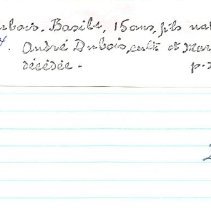 ubois. Basile, 15 ans, fils na
André Dubois, cult. et Mar
décédée. - p.